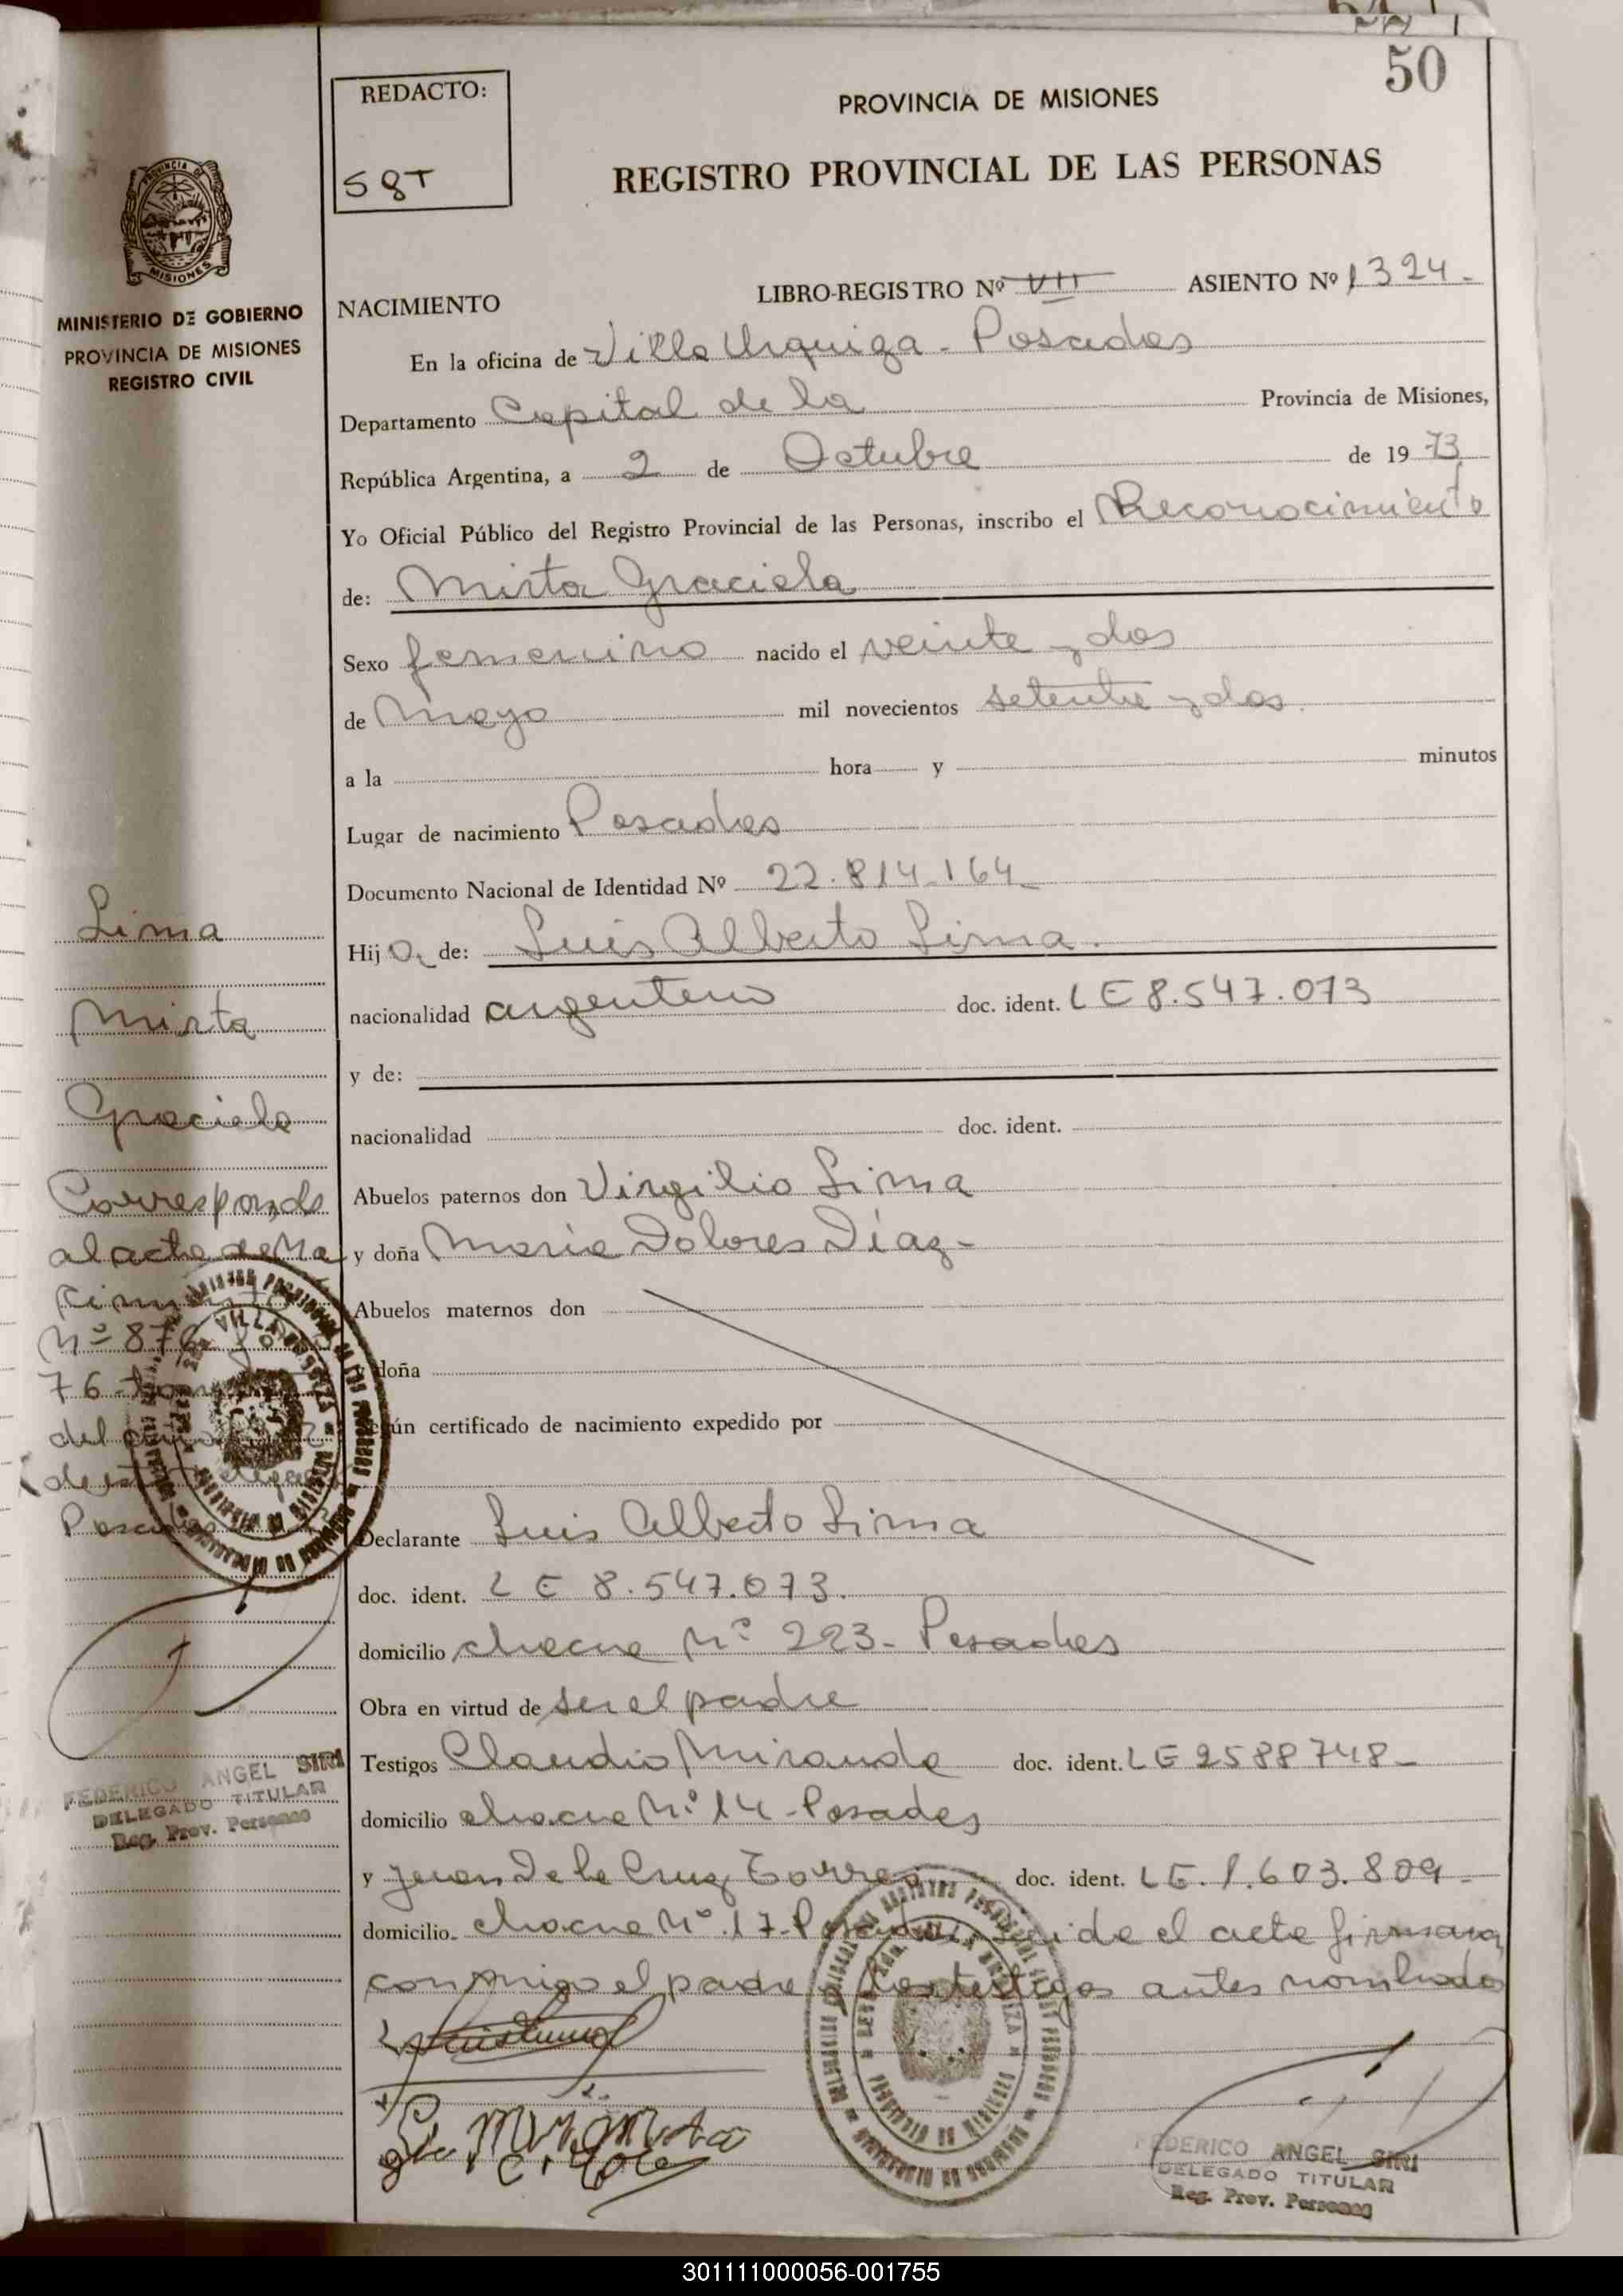 50
REDACTO:
PROVINCIA DE MISIONES
SgT
REGISTRO PROVINCIAL DE LAS PERSONAS
MISIONES
MINISTERIO DE GOBIERNO
PROVINCIA DE MISIONES
REGISTRO CIVIL
NACIMIENTO LIBRO-REGISTRO Nº VII ASIENTO Nº 1324-
En la oficina de Villa Urquiza - Posadas
Departamento Capital de la Provincia de Misiones,
República Argentina, a 2 de Octubre de 1973
Yo Oficial Público del Registro Provincial de las Personas, inscribo el Reconocimiento
de: Mirta Graciela
Sexo femenino nacido el veinte y dos
de Mayo mil novecientos setenta y dos.
a la hora y minutos
Lugar de nacimiento Posadas
Documento Nacional de Identidad Nº 22.814.164
Hija de: Luis Alberto Lima.
nacionalidad argentino doc. ident. LE 8.547.073
y de:
nacionalidad doc. ident.
Abuelos paternos don Virgilio Lima
y doña María Dolores Díaz-
Abuelos maternos don
doña
certificado de nacimiento expedido por
Declarante Luis Alberto Lima
doc. ident. LE 8.547.073.
domicilio chacra Nº 223- Posadas
Obra en virtud de ser el padre
Testigos Claudio Miranda doc. ident. LE 2588748-
domicilio chacra Nº 14 - Posadas
y Juan De la Cruz Torres doc. ident. LE. 1.603.809-
domicilio chacra Nº 17- el acta firman
conmigo el padre testigos antes nombrados
Lima
Mirta
Graciela
Corresponde
al acta de Na
Nº 876
76
del
Posadas
FEDERICO ANGEL SIRI
DELEGADO TITULAR
Reg. Prov. Personas
FEDERICO ANGEL SIRI
DELEGADO TITULAR
Reg. Prov. Personas
301111000056-001755